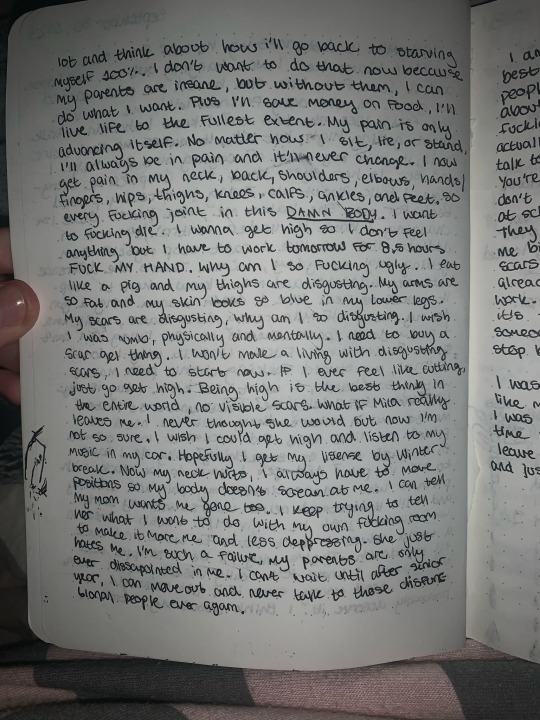 lot and think about how i'll go back to starving
myself 100%. I don't want to do that now because
my parents are insane, but without them, I can
do what I want. Plus I'll save money on food, I'll
live life to the fullest extent. My pain is only
advancing itself. No matter how I sit, lie, or stand,
I'll always be in pain and it'll never change. I now
get pain in my neck, back, shoulders, elbows, hands/
fingers, hips, thighs, knees, calfs, ankles, and feet, so
every fucking joint in this DAMN BODY. I want
to fucking die.. I wanna get high so I don't feel
anything but I have to work tomorrow for 8.5 hours
FUCK MY HAND. Why am I so fucking ugly.. I eat
like a pig and my thighs are disgusting. My arms are
so fat and my skin looks so blue in my lower legs.
My scars are disgusting, why am I so disgusting. I wish
I was numb, physically and mentally. I need to buy a
scar gel thing. I won't make a living with disgusting
scars, I need to start now. If I ever feel like cutting,
just go get high. Being high is the best thing in
the entire world, no visible scars. What if Mica really
leaves me. I never thought she would but now I'm
not so sure. I wish I could get high and listen to my
music in my car. Hopefully I get my lisense by Winter
break. Now my neck hurts, I always have to move
positions so my body doesn't scream at me. I can tell
my mom wants me gone too. I keep trying to tell
her what I want to do with my own fucking room
to make it more me and less depressing. She just
hates me. I'm such a failure, my parents are only
ever dissapointed in me. I can't wait until after senior
year, I can move out and never talk to those disfunc
tional people ever again.
I am
best
people
about
fuckin
actuall
talk to
You're
don't
at sch
They
me bi
scars
alread
work.
it's
someo
stop b
I was
like m
I was
time
leave
and jus